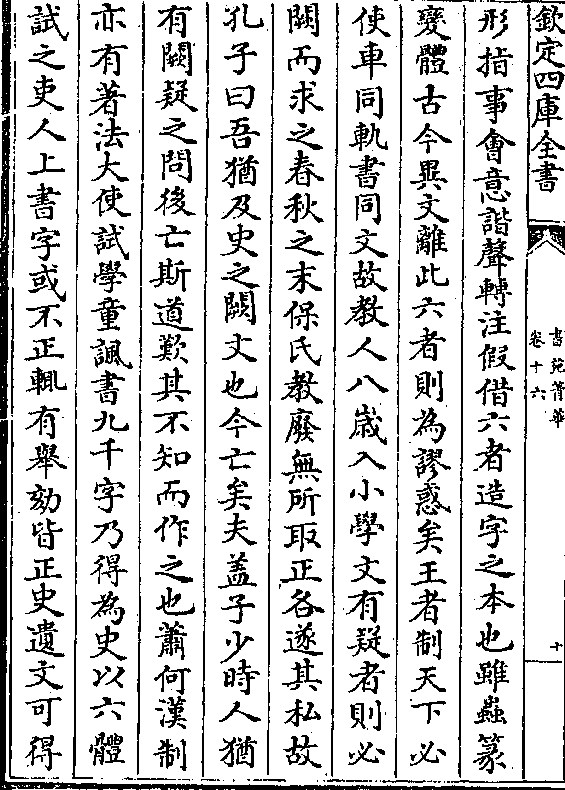 欽定四庫全書
書苑菁華
卷十六
十
形指事會意諧聲轉注假借六者造字之本也雖蟲篆
變體古今異文離此六者則為謬惑矣王者制天下必
使車同軌書同文故教人八歲入小學文有疑者則必
闕而求之春秋之末保氏教廢無所取正各遂其私故
孔子曰吾猶及史之闕文也今亡矣夫蓋子少時人猶
有闕疑之問後亡斯道歎其不知而作之也蕭何漢制
亦有著法大使試學童諷書九千字乃得為史以六體
試之吏人上書字或不正輒有舉劾皆正史遺文可得